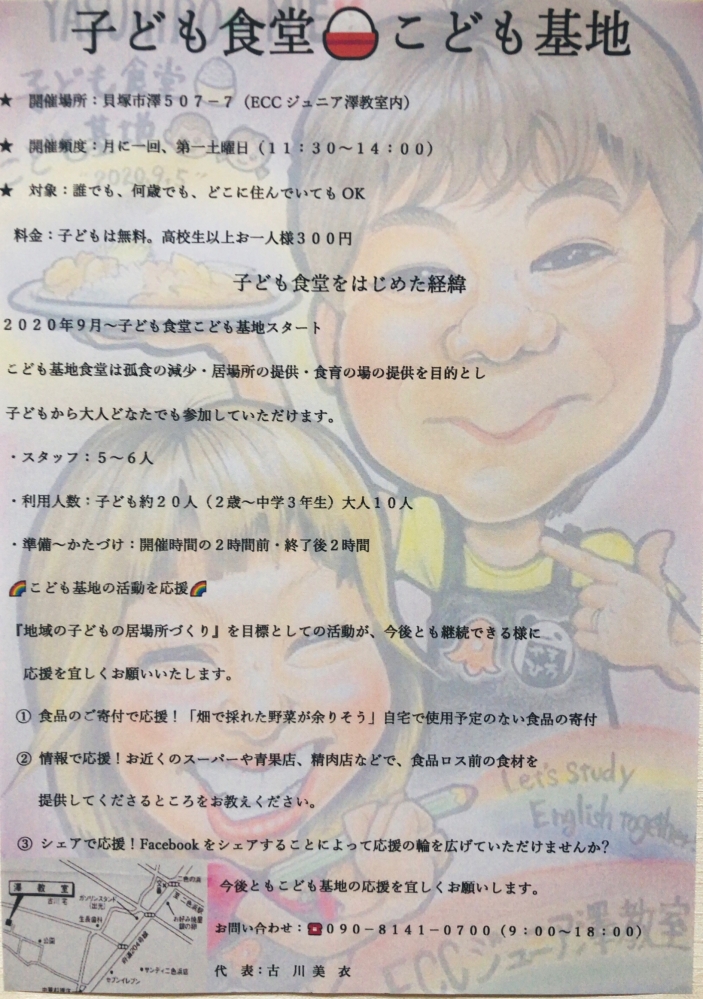 子ども食堂 こども基地
★ 開催場所：貝塚市澤５０７－７（ECC ジュニア澤教室内）
★ 開催頻度：月に一回、第一土曜日（１１：３０～１４：００）
★ 対象：誰でも、何歳でも、どこに住んでいても OK
料金：子どもは無料。高校生以上お一人様３００円
子ども食堂をはじめた経緯
２０２０年９月～子ども食堂こども基地スタート
こども基地食堂は孤食の減少・居場所の提供・食育の場の提供を目的とし
子どもから大人どなたでも参加していただけます。
・スタッフ：５～６人
・利用人数：子ども約２０人（２歳～中学３年生）大人１０人
・準備～かたづけ：開催時間の２時間前・終了後２時間
🌈こども基地の活動を応援🌈
『地域の子どもの居場所づくり』を目標としての活動が、今後とも継続できる様に
応援を宜しくお願いいたします。
① 食品のご寄付で応援！「畑で採れた野菜が余りそう」自宅で使用予定のない食品の寄付
② 情報で応援！お近くのスーパーや青果店、精肉店などで、食品ロス前の食材を
提供してくださるところをお教えください。
③ シェアで応援！Facebook をシェアすることによって応援の輪を広げていただけませんか？
今後ともこども基地の応援を宜しくお願いします。
お問い合わせ：☎０９０－８１４１－０７００（９：００～１８：００）
代 表：古 川 美 衣
子ども食堂
こども基地
"2020.9.5"
Let's study
English together
ECCジュニア澤教室
澤 教 室
ガソリンスタンド
生長歯科
公園
セブンイレブン
サンディ二色浜店
お好み焼屋